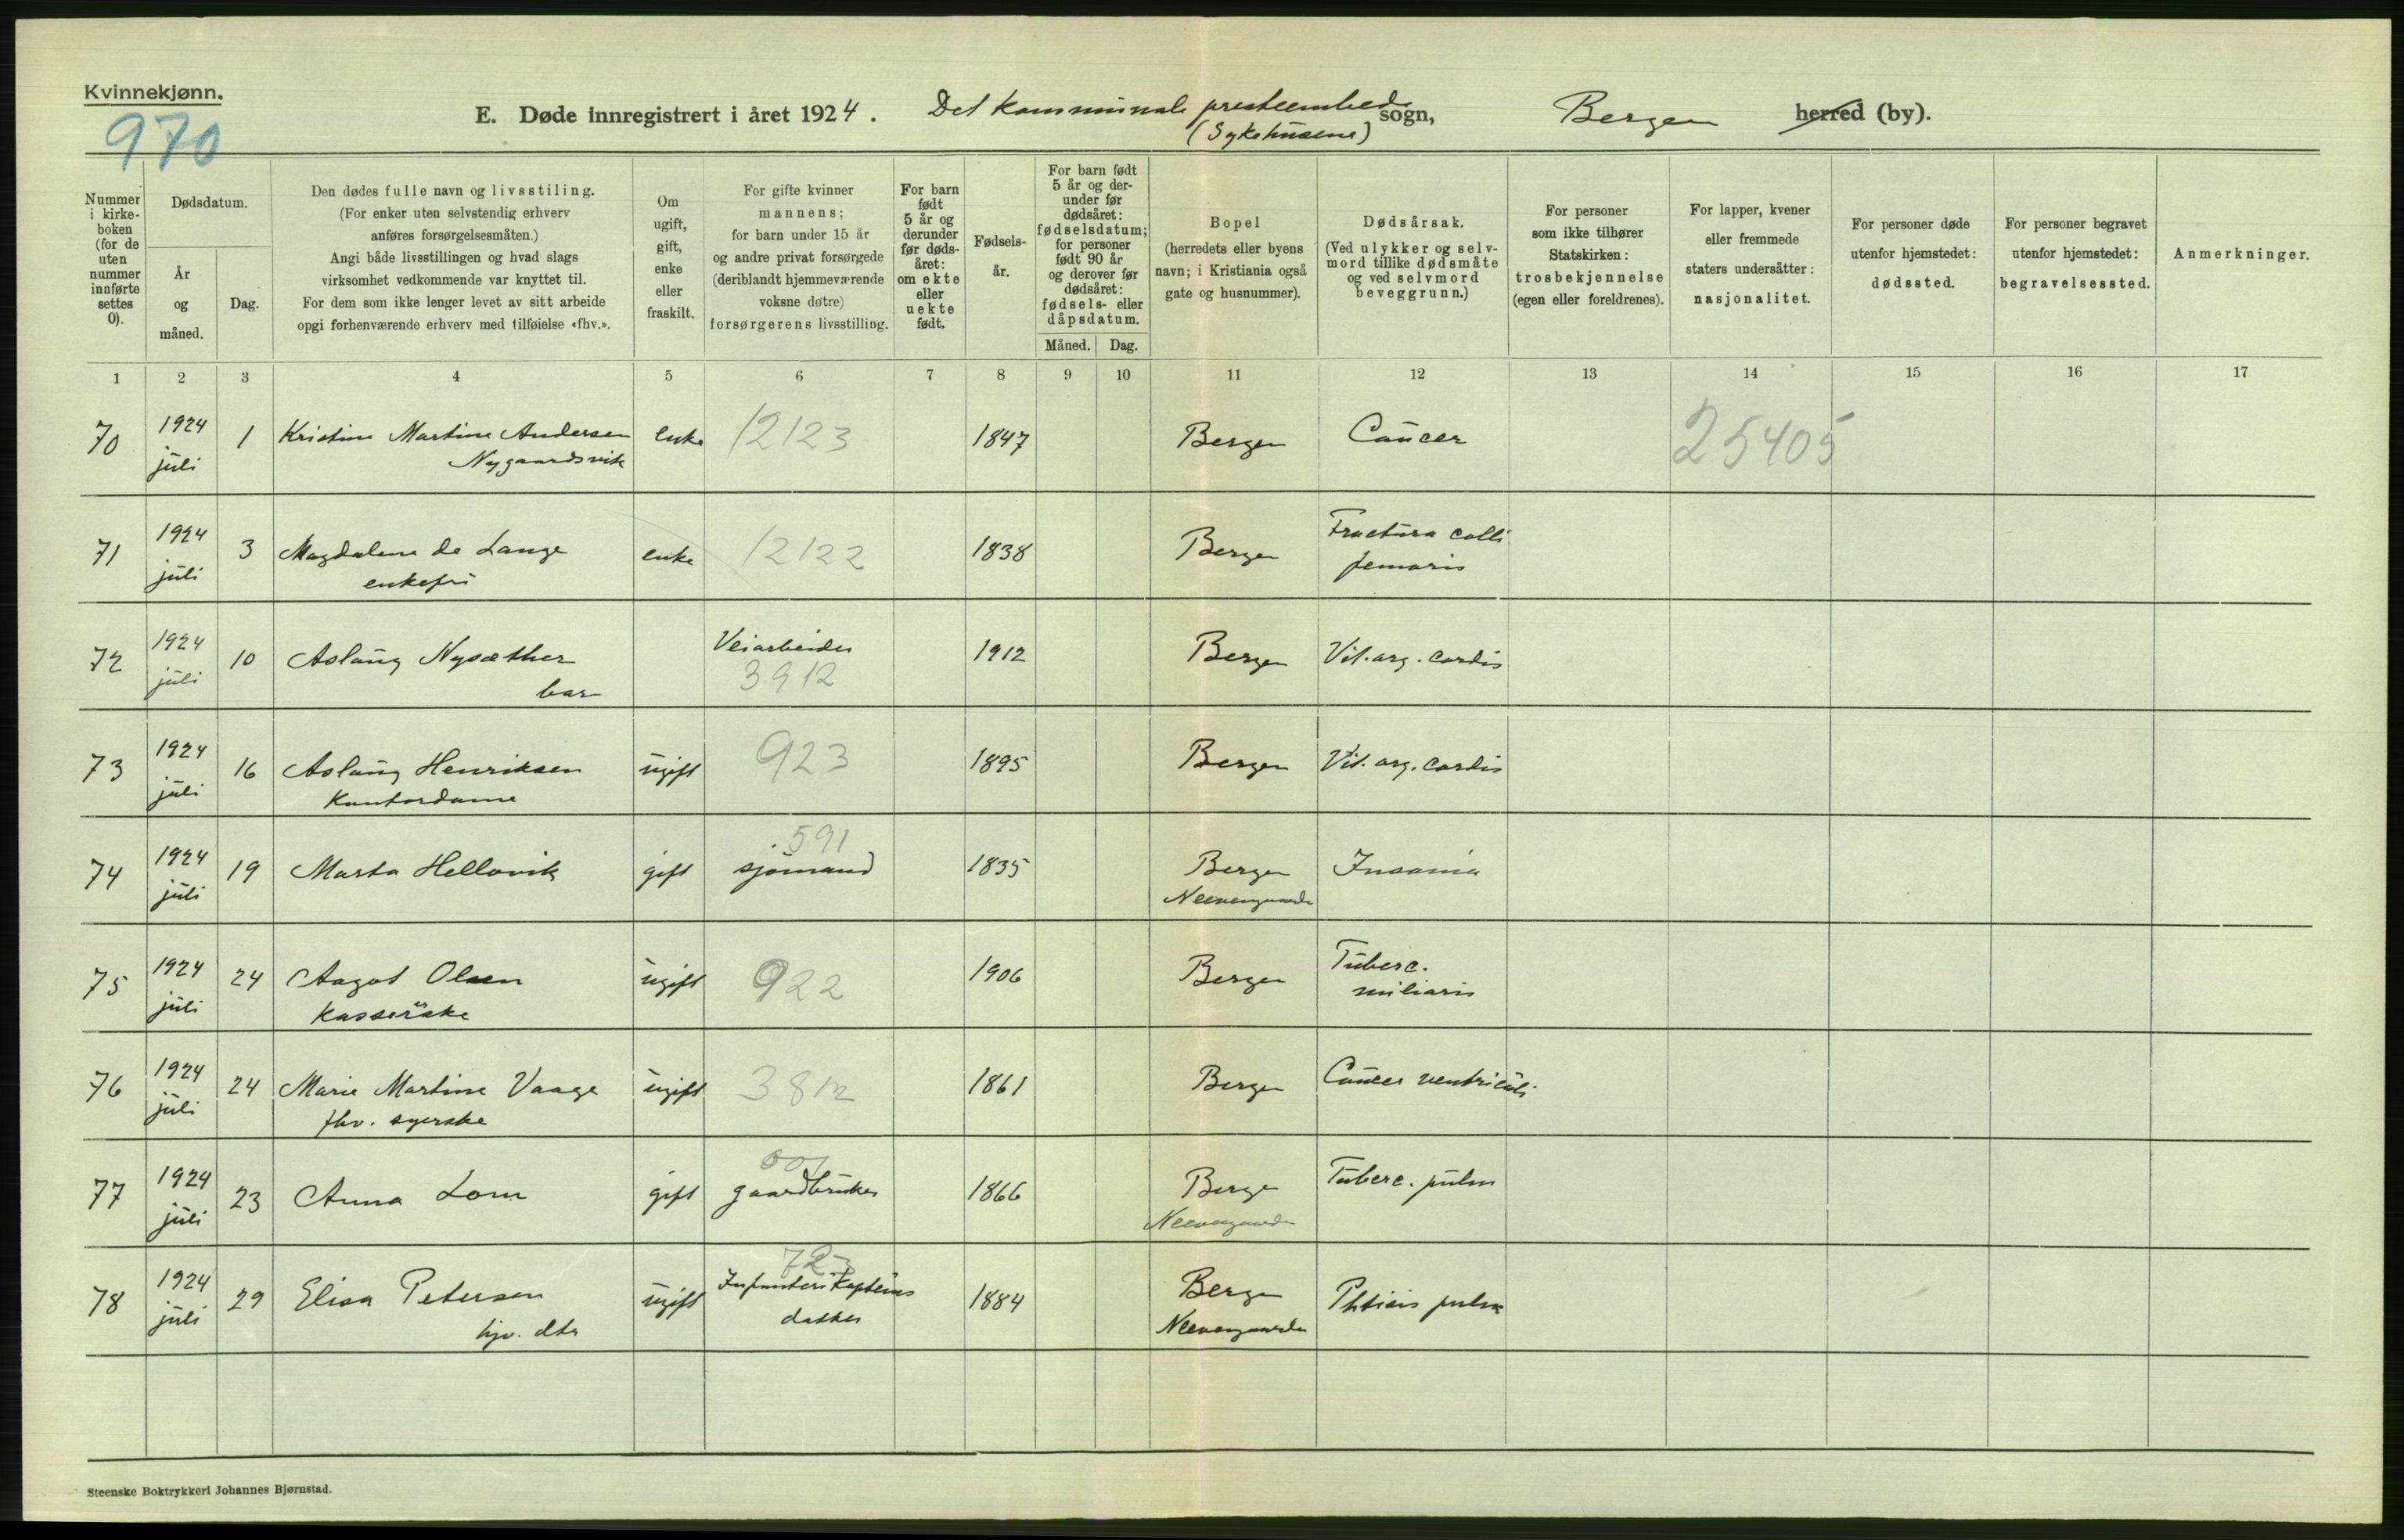 Kvinnekjønn.
970
E. Døde innregistrert i året 1924. Det kommunale presteembede sogn, Bergen herred (by).
(Sykehusene)
Nummer i kirke-boken (for de uten nummer innførte settes 0).
Dødsdatum.
År og måned.
Dag.
Den dødes fulle navn og livsstiling.
(For enker uten selvstendig erhverv
anføres forsørgelsesmåten.)
Angi både livsstillingen og hvad slags
virksomhet vedkommende var knyttet til.
For dem som ikke lenger levet av sitt arbeide
opgi forhenværende erhverv med tilføielse «fhv.».
Om ugift, gift, enke eller fraskilt.
For gifte kvinner
mannens;
for barn under 15 år
og andre privat forsørgede
(deriblandt hjemmeværende
voksne døtre)
forsørgerens livsstilling.
For barn født 5 år og derunder før døds-året: om ekte eller uekte født.
Fødsels-år.
For barn født 5 år og der-under før dødsåret: fødselsdatum; for personer født 90 år og derover før dødsåret: fødsels- eller dåpsdatum.
Måned. Dag.
Bopel
(herredets eller byens
navn; i Kristiania også
gate og husnummer).
Dødsårsak.
(Ved ulykker og selv-
mord tillike dødsmåte
og ved selvmord
beveggrunn.)
For personer
som ikke tilhører
Statskirken:
trosbekjennelse
(egen eller foreldrenes).
For lapper, kvener
eller fremmede
staters undersåtter:
nasjonalitet.
For personer døde
utenfor hjemstedet:
dødssted.
For personer begravet
utenfor hjemstedet:
begravelsessted.
Anmerkninger.
1 2 3 4 5 6 7 8 9 10 11 12 13 14 15 16 17
70 1924 juli 1 Kristine Martine Andersen enke 12123 1847 Bergen Cancer 25405
Nygaardsvik
71 1924 juli 3 Magdalene de Lange enke 12122 1838 Bergen Fractura colli
enkefru femoris
72 1924 juli 10 Aslaug Nysæther Veiarbeider 1912 Bergen Vit. org. cordis
barn 3912
73 1924 juli 16 Aslaug Henriksen ugift 923 1895 Bergen Vit. org. cordis
Kontordame
591
74 1924 juli 19 Marta Hellovik gift sjømand 1835 Bergen Insania
Neevengaarden
75 1924 juli 24 Aagot Olsen ugift 922 1906 Bergen Tuberc.
Kasserske miliaris
76 1924 juli 24 Marie Martine Vaage ugift 3812 1861 Bergen Cancer ventriculi
fhv. syerske
77 1924 juli 23 Anna Lom gift gaardbruker 1866 Bergen Tuberc. pulm
Neevengaarden
723
78 1924 juli 29 Elisa Petersen ugift Infanterikapteins 1884 Bergen Phtisis pulm
hjv. dtr datter Neevengaarden
Steenske Boktrykkeri Johannes Bjørnstad.